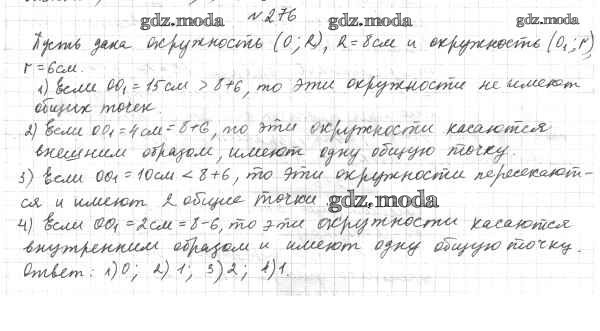 № 276
gdz.moda gdz.moda gdz.moda
Пусть дана окружность (O; R), R = 8см и окружность (O₁; r),
r = 6см.
1) Если OO₁ = 15см > 8+6, то эти окружности не имеют
общих точек.
2) Если OO₁ = 4см = 8+6, то эти окружности касаются
внешним образом, имеют одну общую точку.
3) Если OO₁ = 10см < 8+6, то эти окружности пересекают-
ся и имеют 2 общие точки
gdz.moda
4) Если OO₁ = 2см = 8-6, то эти окружности касаются
внутренним образом и имеют одну общую точку.
Ответ: 1) 0; 2) 1; 3) 2; 4) 1.
gdz.moda gdz.moda